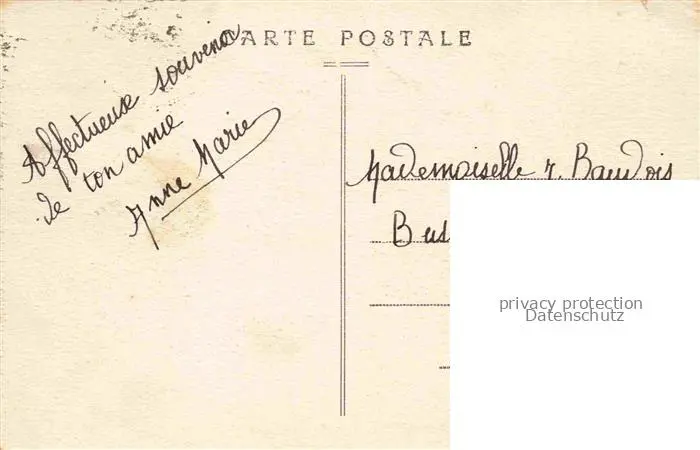 CARTE POSTALE
Affectueux souvenir
de ton amie
Anne Marie
Mademoiselle
privacy protection
Datenschutz